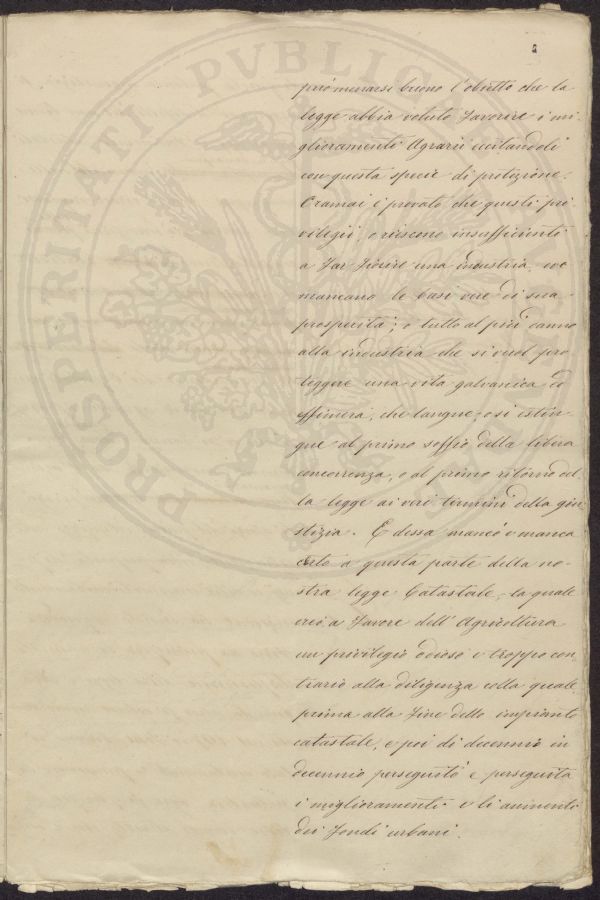 può menarsi buono l'obietto che la
legge abbia voluto favorire i mi-
glioramenti Agrarii eccitandoli
con questa specie di protezione.
Oramai è provato che questi pri
vilegii, o riescono insufficienti
a far fiorire una industria, ove
mancano le basi vere di sua
prosperità; o tutto al più danno
alla industria che si vuol pro
teggere una vita galvanica ed
effimera, che langue, o si estin-
gue al primo soffio della libera
concorrenza, o al primo ritorno del
la legge ai veri termini della giu
stizia. E dessa mancò e manca
certo a questa parte della no-
stra legge Catastale, la quale
creò a favore dell'Agricoltura
un privilegio odioso e troppo con
trario alla diligenza colla quale
prima alla fine dello impianto
catastale, e poi di decennio in
decennio perseguitò e perseguita
i miglioramenti e li aumenti
dei fondi urbani.
PROSPERITATI PVBLICAE